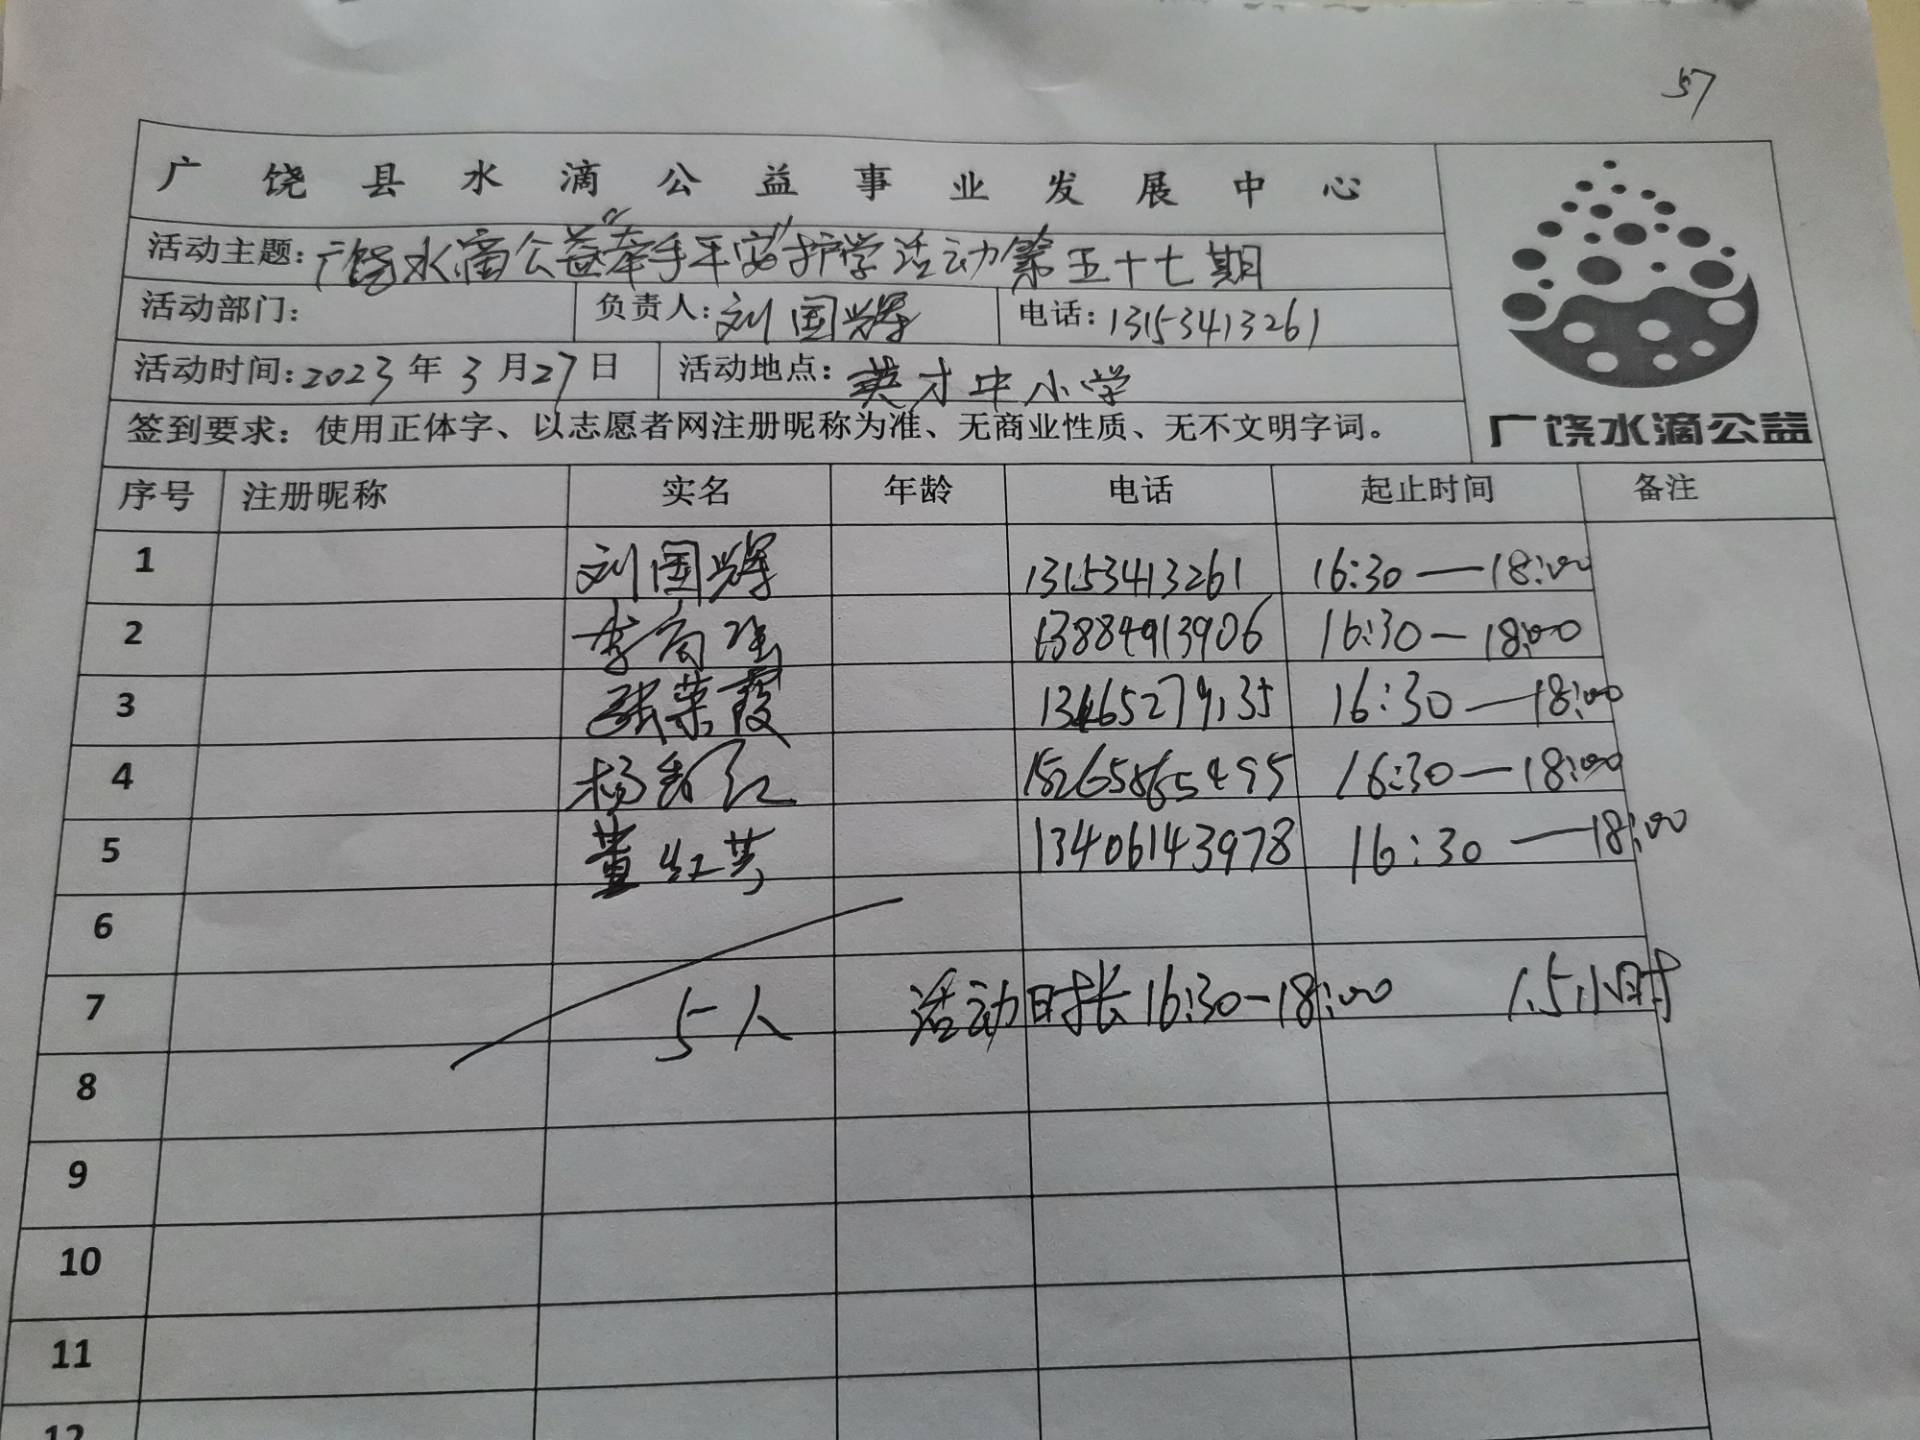 57
广饶县水滴公益事业发展中心
活动主题:广饶水滴公益“牵手平安”护学活动第五十七期
活动部门: 负责人:刘国辉 电话:13153413261
活动时间:2023年3月27日 活动地点:英才中小学
签到要求:使用正体字、以志愿者网注册昵称为准、无商业性质、无不文明字词。
广饶水滴公益
序号 注册昵称 实名 年龄 电话 起止时间 备注
1 刘国辉 13153413261 16:30—18:00
2 李高强 13884913906 16:30—18:00
3 张荣霞 13465279135 16:30—18:00
4 杨香红 15265865495 16:30—18:00
5 董红芸 13406143978 16:30—18:00
6
7 5人 活动时长16:30-18:00 1.5小时
8
9
10
11
12